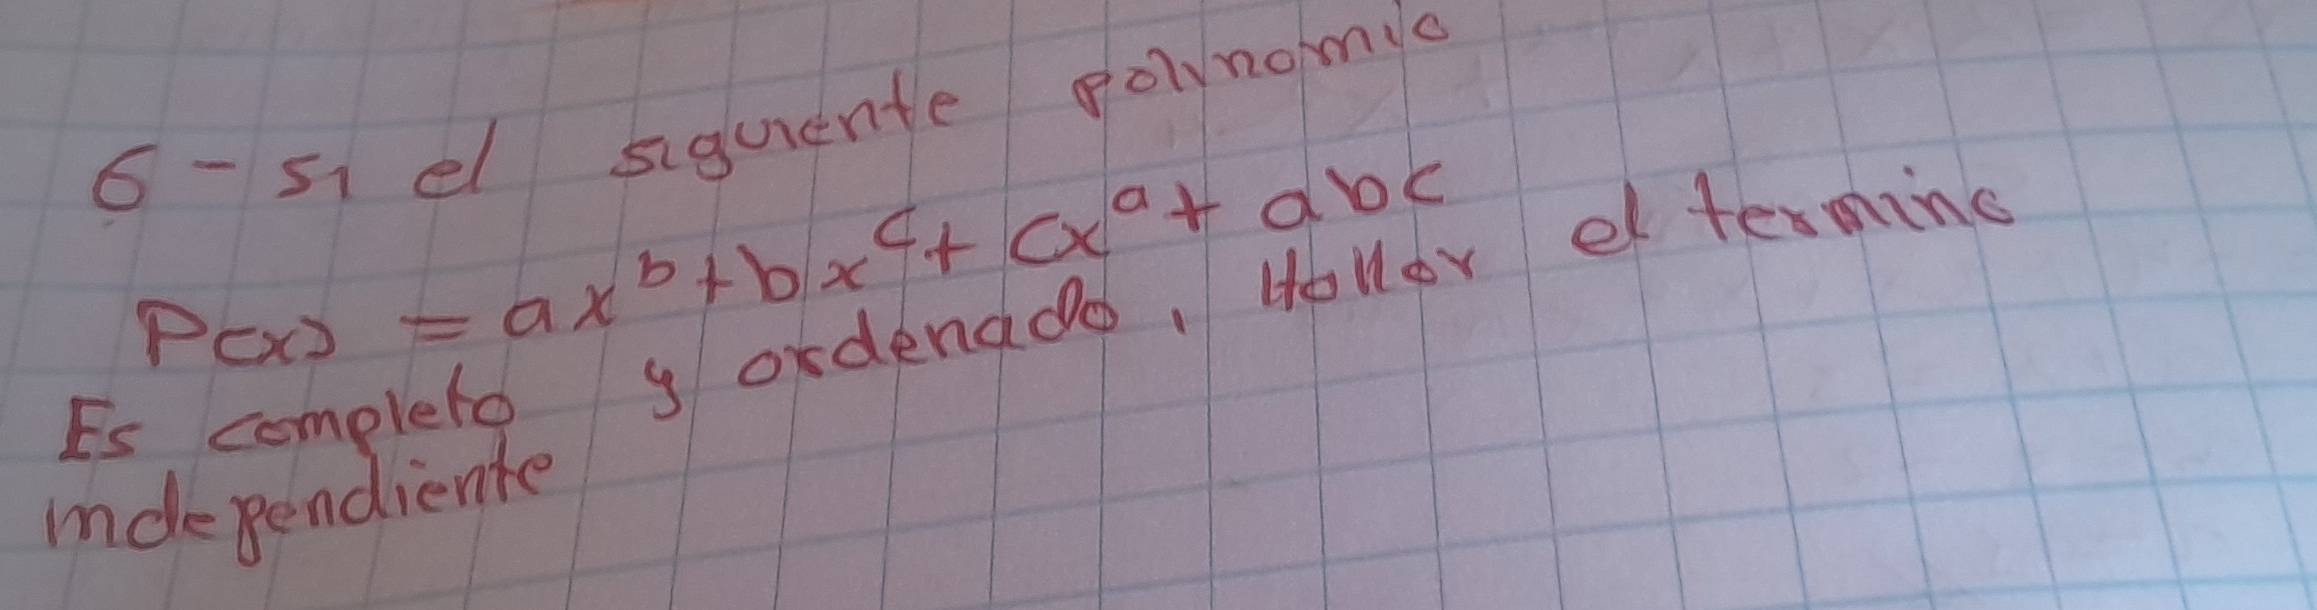 6 - si el siguiente polinomio
P(x) = ax^b + bx^c + cx^a + abc
Es completo y ordenado, Hallar el termino
independiente